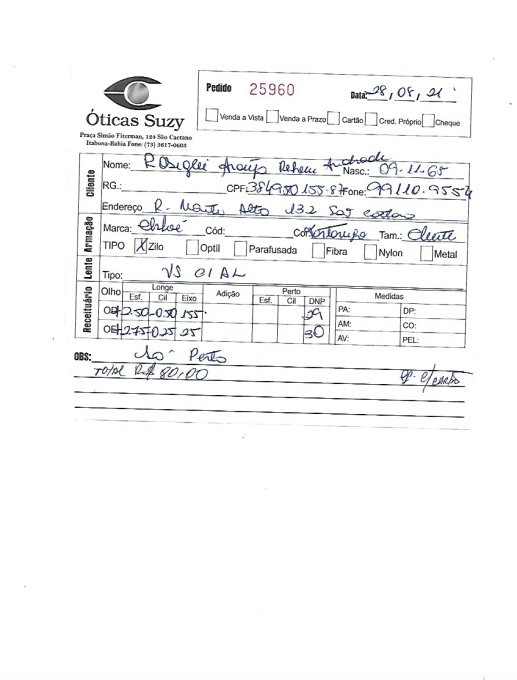 Óticas Suzy
Praça Simão Fiterman, 124 São Caetano
Itabuna-Bahia Fone: (73) 3617-0603
Pedido 25960 Data: 28, 08, 21
Venda a Vista Venda a Prazo Cartão Cred. Próprio Cheque
Cliente
Nome: Araujo Andrade Nasc.: 09.11.65
RG.: CPF: 384950155-87 Fone: 99110.9554
Endereço R. Monte Alto 132 São
Armação
Marca: Chloé Cód: Cor Tartaruga Tam.: Cliente
TIPO X Zilo Optil Parafusada Fibra Nylon Metal
Lente
Tipo: VS 01 AL
Receituário
Olho Longe Adição Perto Medidas
Esf. Cil Eixo Esf. Cil DNP
OD +2.50 -0.50 155º 29 PA: DP:
OE +2.75 -0.25 25 30 AM: CO:
AV: PEL:
OBS: Só Perto
TOTAL R$ 80,00